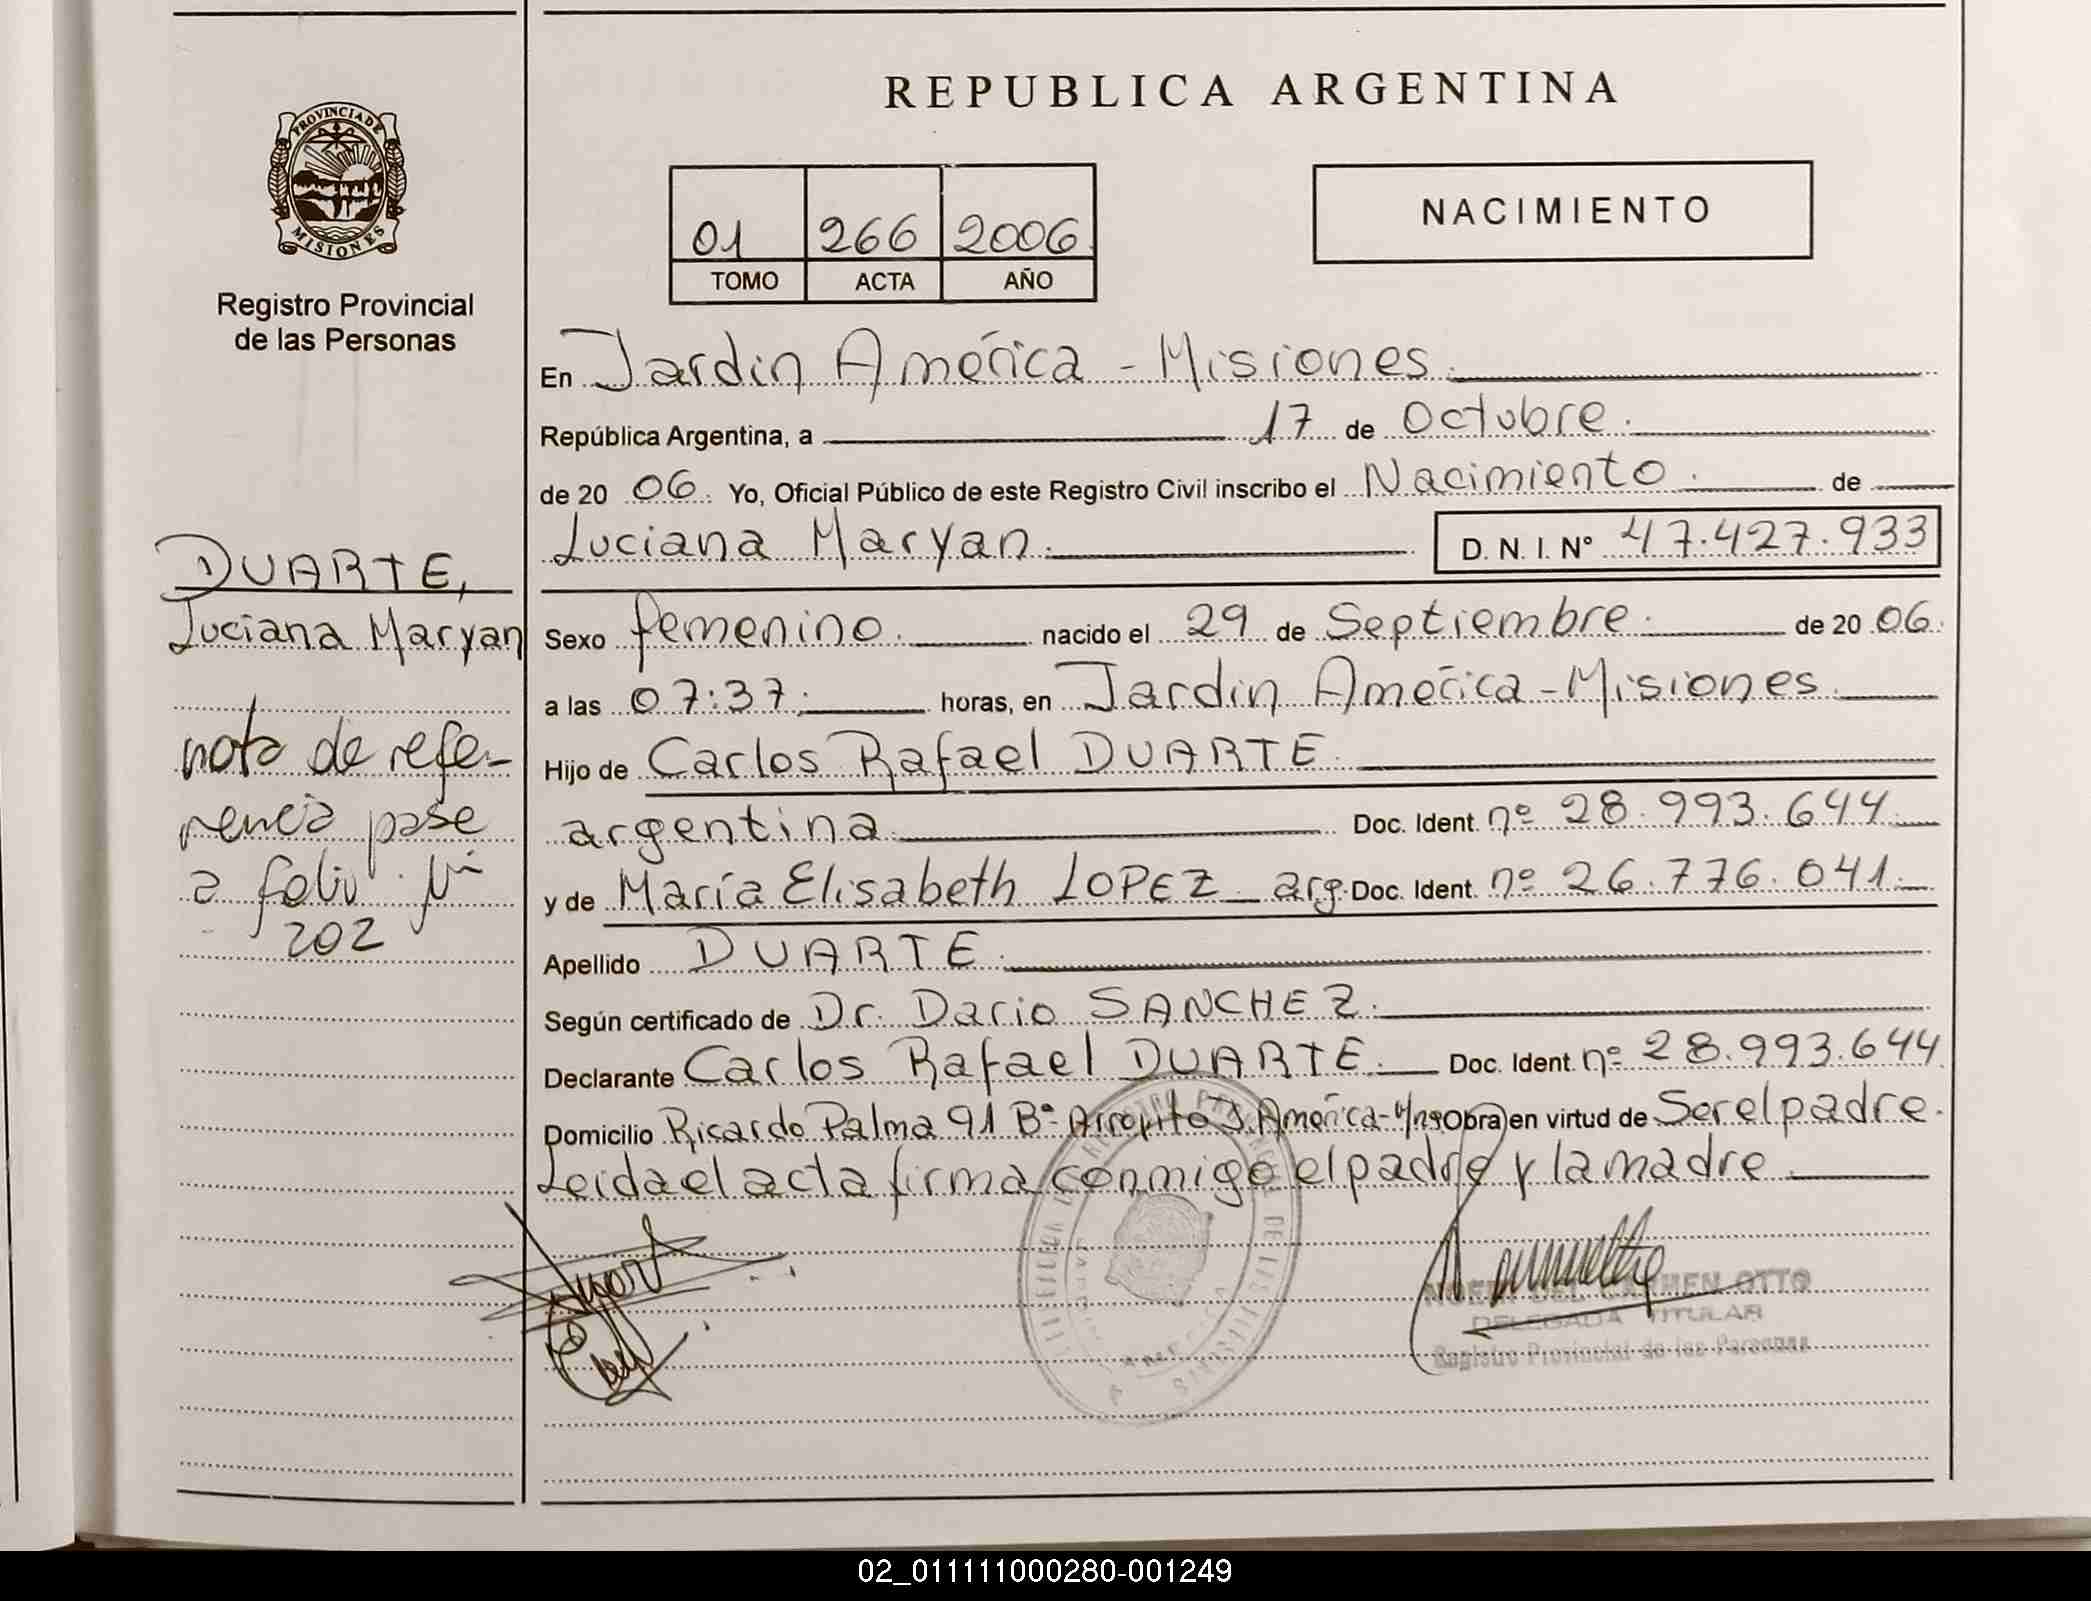 PROVINCIA DE
MISIONES
Registro Provincial
de las Personas
REPUBLICA ARGENTINA
01 266 2006
TOMO ACTA AÑO
NACIMIENTO
En Jardin América - Misiones
República Argentina, a 17 de Octubre
de 20 06 Yo, Oficial Público de este Registro Civil inscribo el Nacimiento de
Luciana Maryan D. N. I. N° 47.427.933
DUARTE,
Luciana Maryan
nota de refe-
rencia pase
a folio Nº
202
Sexo femenino nacido el 29 de Septiembre de 20 06
a las 07:37 horas, en Jardin América - Misiones
Hijo de Carlos Rafael DUARTE
argentina Doc. Ident. nº 28.993.644
y de María Elisabeth LOPEZ arg. Doc. Ident. nº 26.776.041
Apellido DUARTE
Según certificado de Dr. Dario SANCHEZ
Declarante Carlos Rafael DUARTE Doc. Ident. nº 28.993.644
Domicilio Ricardo Palma 91 Bº Arroyito J. América - Obra en virtud de Ser el padre
Leida el acta firma conmigo el padre y la madre
NOEMI DEL CARMEN OTTO
DELEGADA TITULAR
Registro Provincial de las Personas
02_011111000280-001249